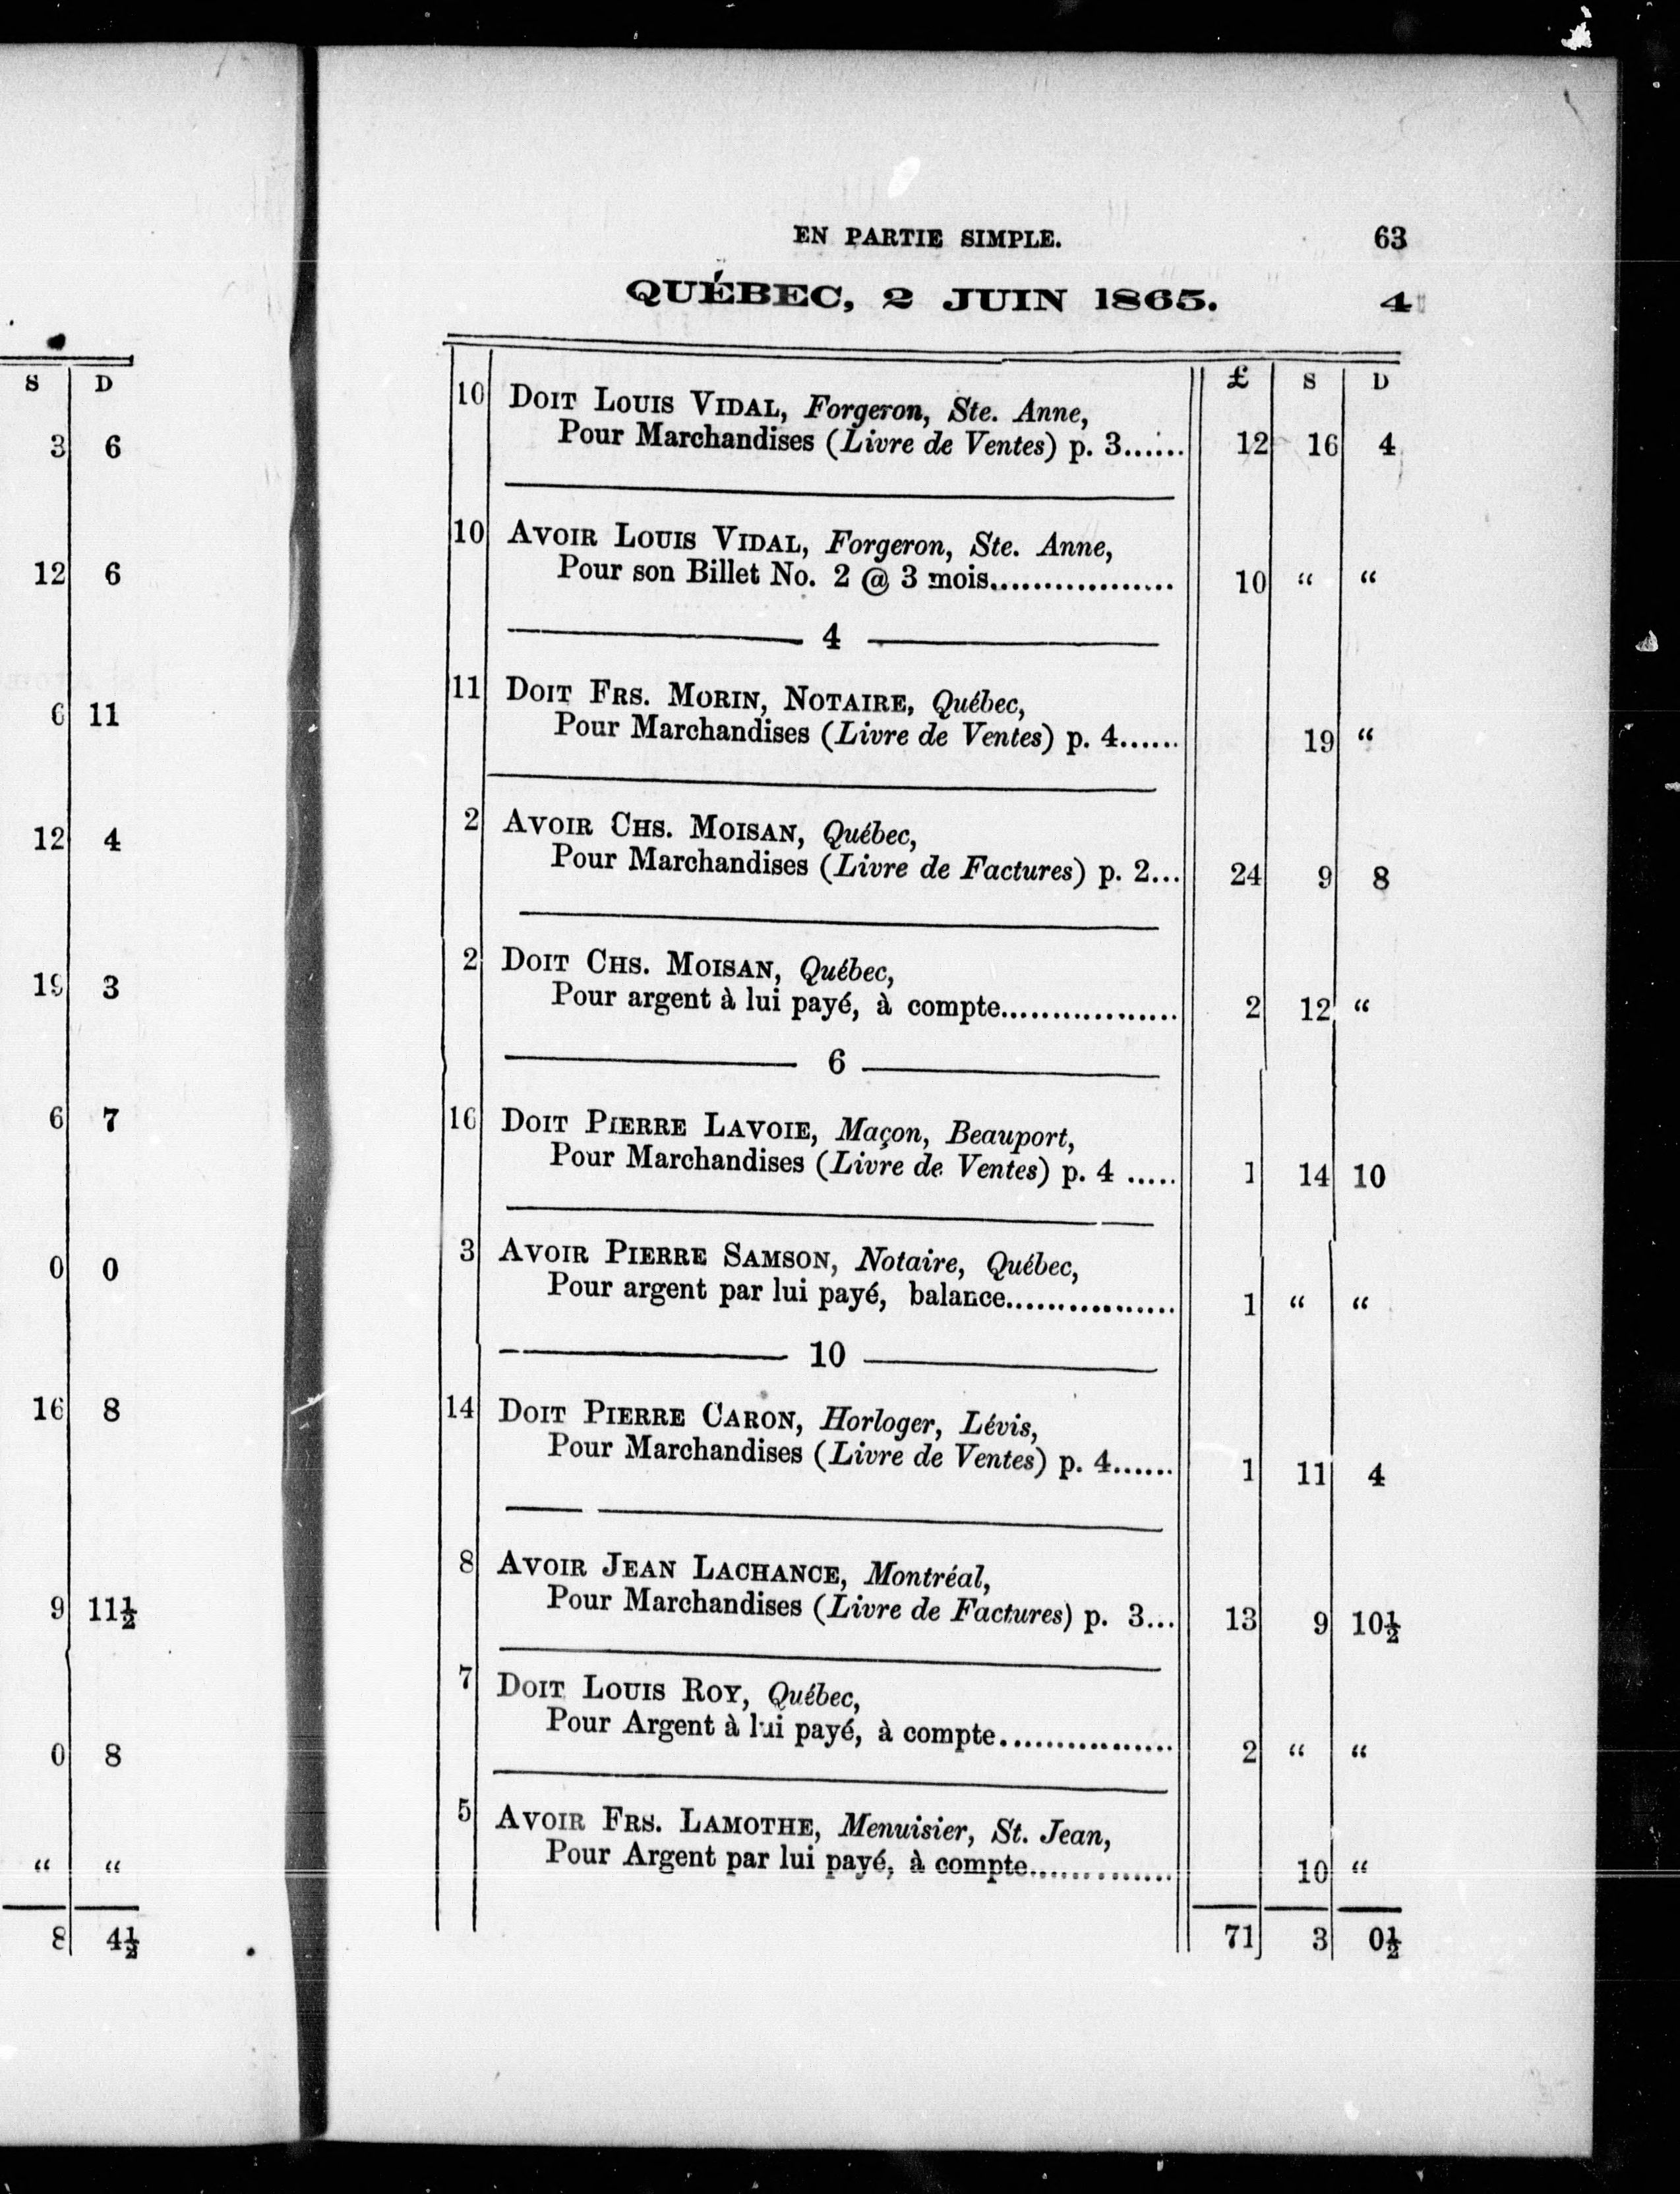 S D
3 6
12 6
6 11
12 4
19 3
6 7
0 0
16 8
9 11½
0 8
“ “
8 4½
EN PARTIE SIMPLE. 63
QUÉBEC, 2 JUIN 1865. 4
£ S D
10 DOIT LOUIS VIDAL, Forgeron, Ste. Anne,
Pour Marchandises (Livre de Ventes) p. 3...... 12 16 4
10 AVOIR LOUIS VIDAL, Forgeron, Ste. Anne,
Pour son Billet No. 2 @ 3 mois.................. 10 “ “
4
11 DOIT FRS. MORIN, NOTAIRE, Québec,
Pour Marchandises (Livre de Ventes) p. 4...... 19 “
2 AVOIR CHS. MOISAN, Québec,
Pour Marchandises (Livre de Factures) p. 2... 24 9 8
2 DOIT CHS. MOISAN, Québec,
Pour argent à lui payé, à compte................. 2 12 “
6
16 DOIT PIERRE LAVOIE, Maçon, Beauport,
Pour Marchandises (Livre de Ventes) p. 4 ..... 1 14 10
3 AVOIR PIERRE SAMSON, Notaire, Québec,
Pour argent par lui payé, balance................. 1 “ “
10
14 DOIT PIERRE CARON, Horloger, Lévis,
Pour Marchandises (Livre de Ventes) p. 4...... 1 11 4
8 AVOIR JEAN LACHANCE, Montréal,
Pour Marchandises (Livre de Factures) p. 3... 13 9 10½
7 DOIT LOUIS ROY, Québec,
Pour Argent à lui payé, à compte................. 2 “ “
5 AVOIR FRS. LAMOTHE, Menuisier, St. Jean,
Pour Argent par lui payé, à compte.............. 10 “
71 3 0½